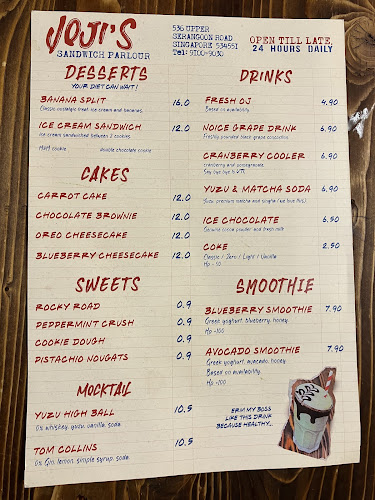 JOJI'S
SANDWICH PARLOUR
536 UPPER
SERANGOON ROAD
SINGAPORE 534551
Tel: 9100-9030
OPEN TILL LATE,
24 HOURS DAILY
DESSERTS
YOUR DIET CAN WAIT!
BANANA SPLIT 16.0
Classic nostalgic treat, ice cream and bananas.
ICE CREAM SANDWICH 12.0
Ice cream sandwiched between 2 cookies.
Mint cookie double chocolate cookie
CAKES
CARROT CAKE 12.0
CHOCOLATE BROWNIE 12.0
OREO CHEESECAKE 12.0
BLUEBERRY CHEESECAKE 12.0
SWEETS
ROCKY ROAD 0.9
PEPPERMINT CRUSH 0.9
COOKIE DOUGH 0.9
PISTACHIO NOUGATS 0.9
MOCKTAIL
YUZU HIGH BALL 10.5
0% whiskey, yuzu, vanilla, soda.
TOM COLLINS 10.5
0% Gin, lemon, simple syrup, soda.
DRINKS
FRESH OJ 4.90
Based on availability
NOICE GRAPE DRINK 6.90
Freshly pounded black grape concoction.
CRANBERRY COOLER 6.90
cranberry and pomegranate.
Say bye bye to UTI.
YUZU & MATCHA SODA 6.90
Yuzu, premium matcha and singha (we love this)
ICE CHOCOLATE 6.50
Genuine cocoa powder and fresh milk
COKE 2.50
Classic / Zero / Light / Vanilla
Hp - 50
SMOOTHIE
BLUEBERRY SMOOTHIE 7.90
Greek yoghurt, blueberry, honey.
Hp +100
AVOCADO SMOOTHIE 7.90
Greek yoghurt, avocado, honey.
Based on availability.
Hp +100
ERM MY BOSS
LIKE THIS DRINK
BECAUSE HEALTHY...